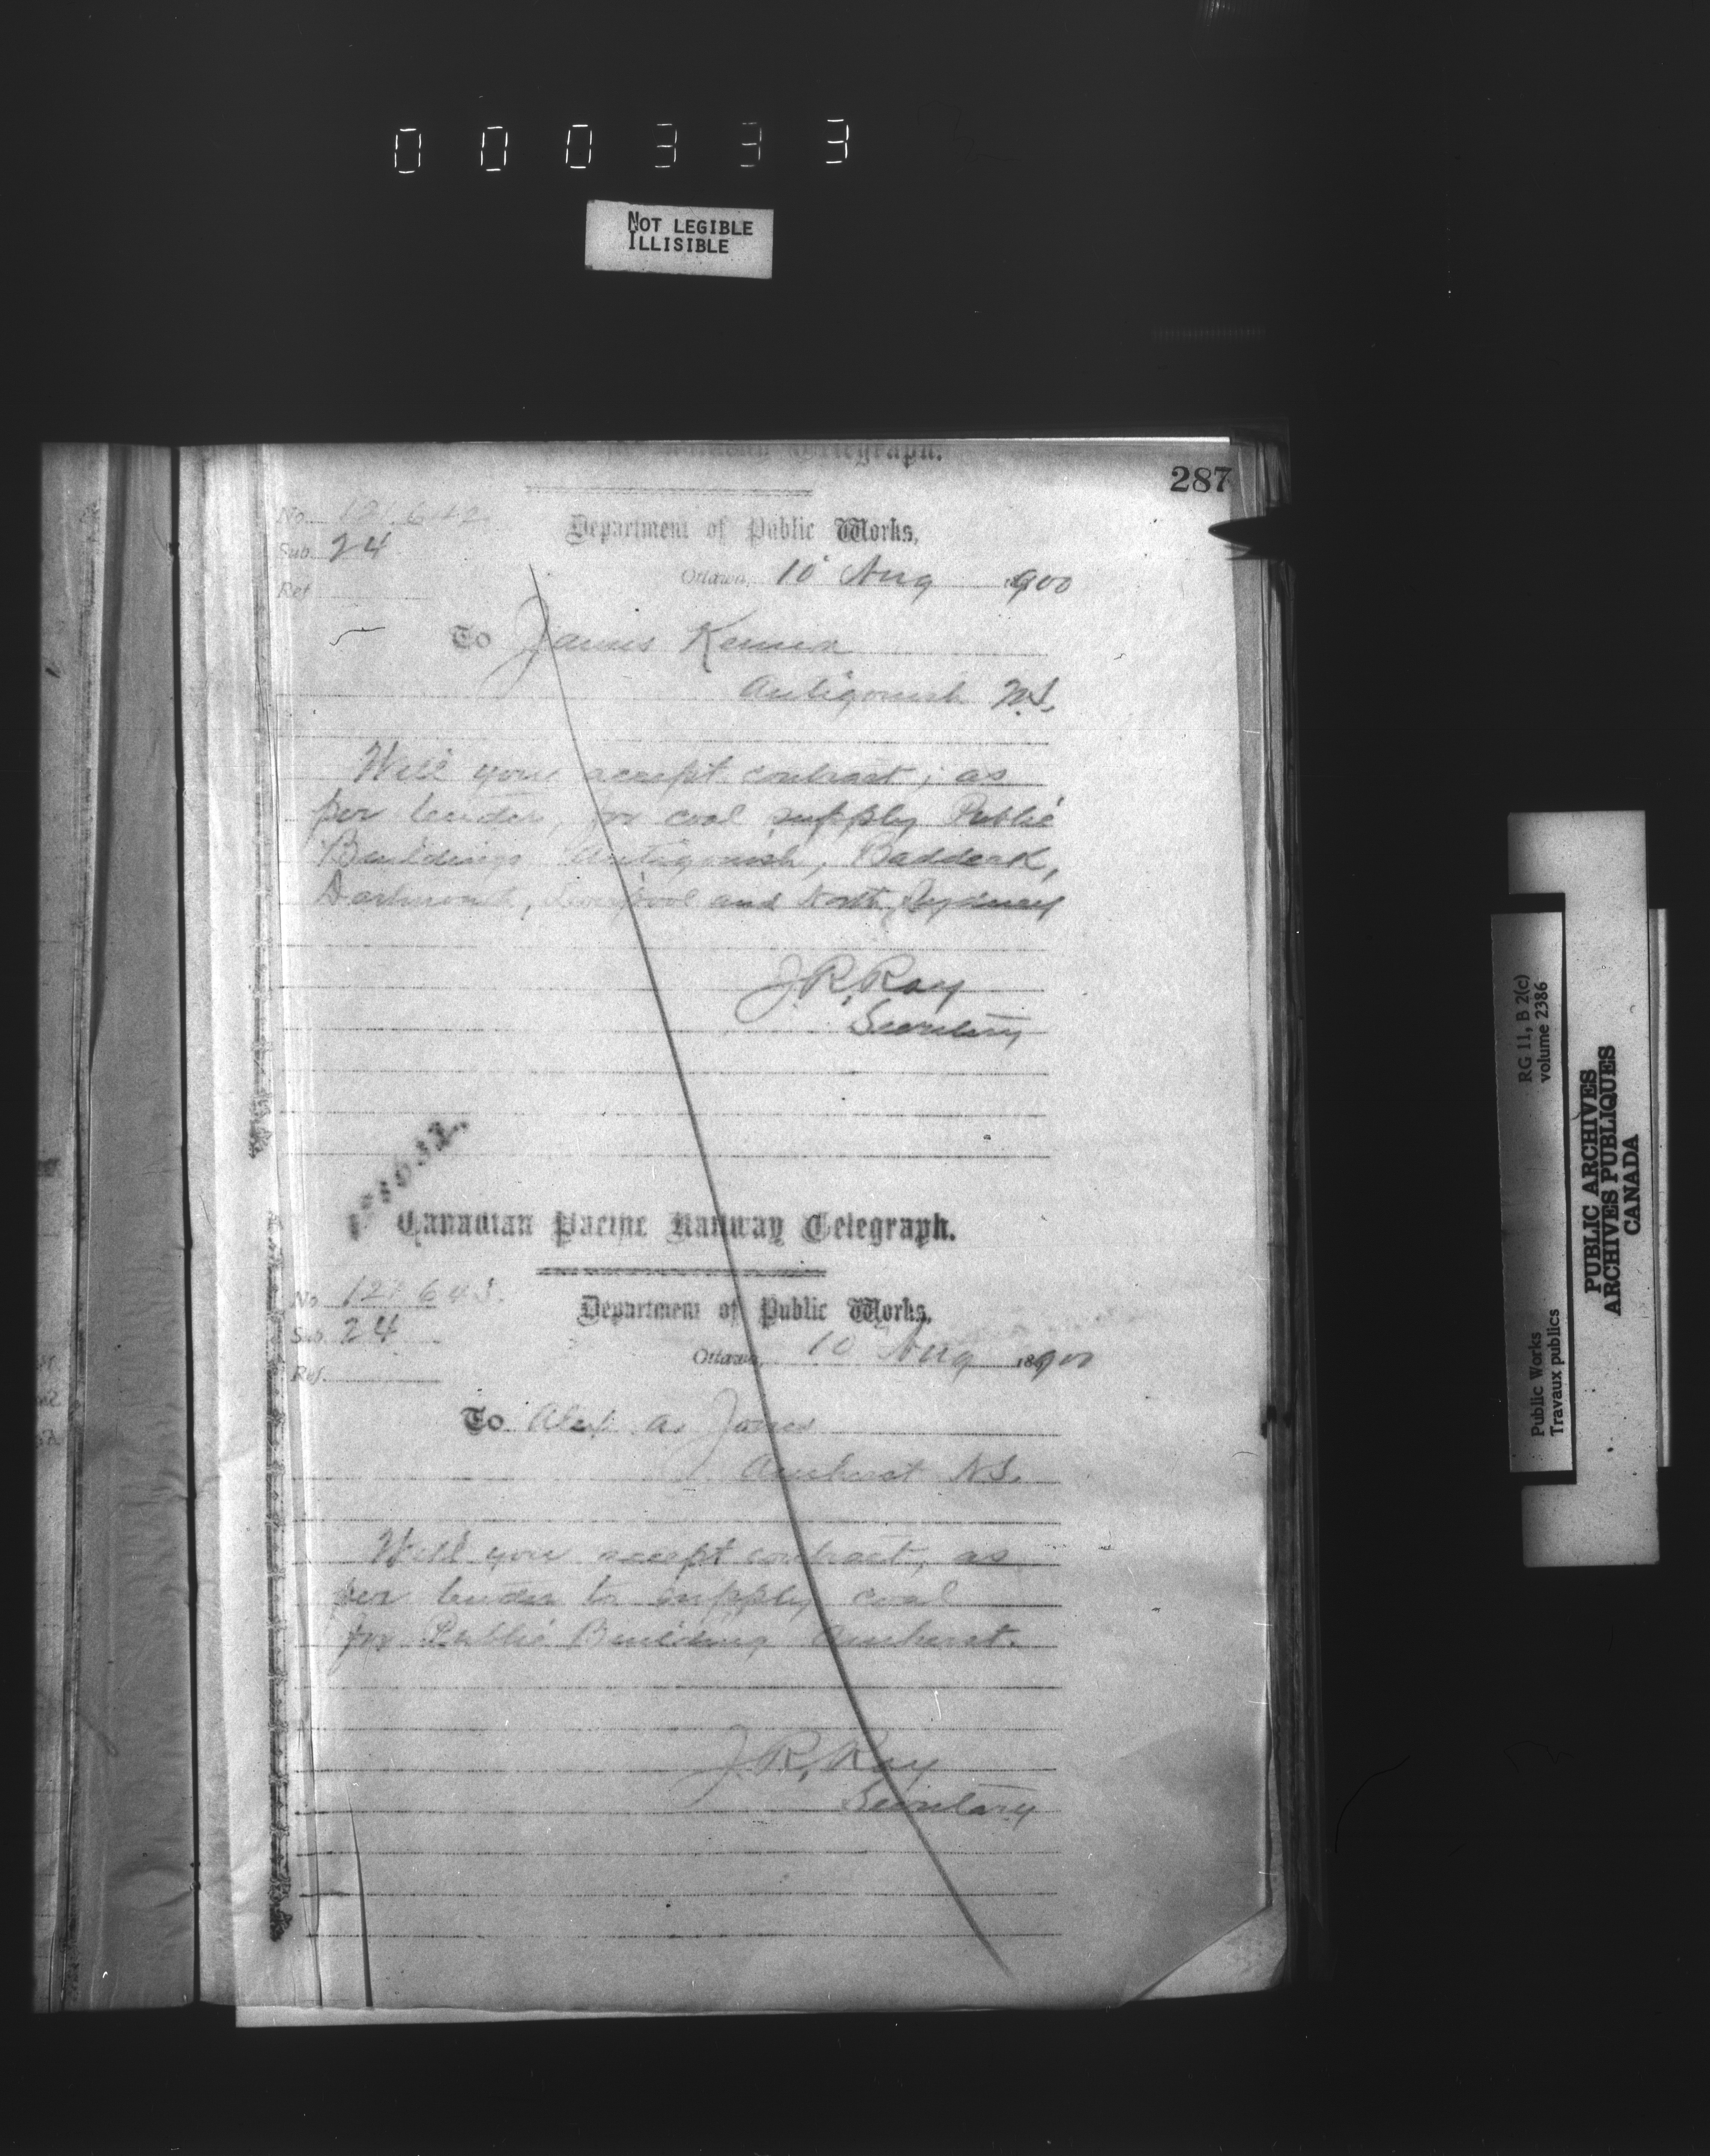 000333
NOT LEGIBLE
ILLISIBLE
Railway Telegraph.
287
No
Sub. 24
Ref
Department of Public Works,
Ottawa, 10 Aug 1900
To James
Antigonish N.S.
Will you accept contract, as
per tender, for coal supply Public
Buildings Antigonish, Baddeck,
Dartmouth, Liverpool and North Sydney
J. R. Roy
Secretary
Canadian Pacific Railway Telegraph.
No
Sub. 24
Ref.
Department of Public Works,
Ottawa, 10 Aug 1900
To Alex. A. Jones
Amherst N.S.
Will you accept contract, as
per tender to supply coal
for Public Building Amherst.
J. R. Roy
Secretary
RG 11, B 2(c)
volume 2386
Public Works
Travaux publics
PUBLIC ARCHIVES
ARCHIVES PUBLIQUES
CANADA